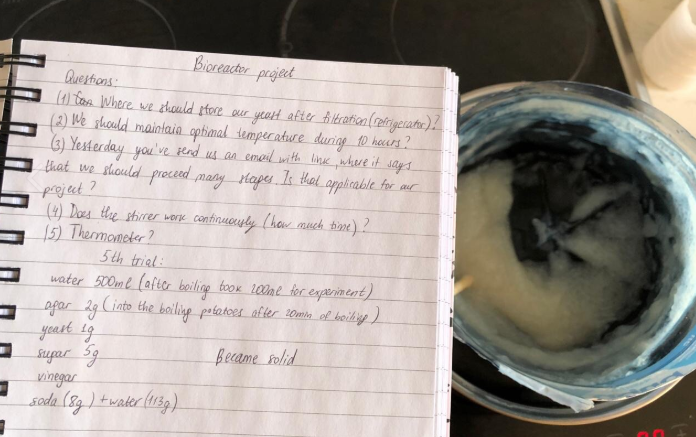 Bioreactor project
Questions:
(1) Where we should store our yeast after filtration (refrigerator)?
(2) We should maintain optimal temperature during 10 hours?
(3) Yesterday you've send us an email with link, where it says
that we should proceed many stages. Is that applicable for our
project?
(4) Does the stirrer work continuously (how much time)?
(5) Thermometer?
5th trial:
water 500ml (after boiling took 200ml for experiment)
agar 2g (into the boiling potatoes after 20min of boiling)
yeast 1g
sugar 5g Became solid
vinegar
soda (8g) + water (113g)